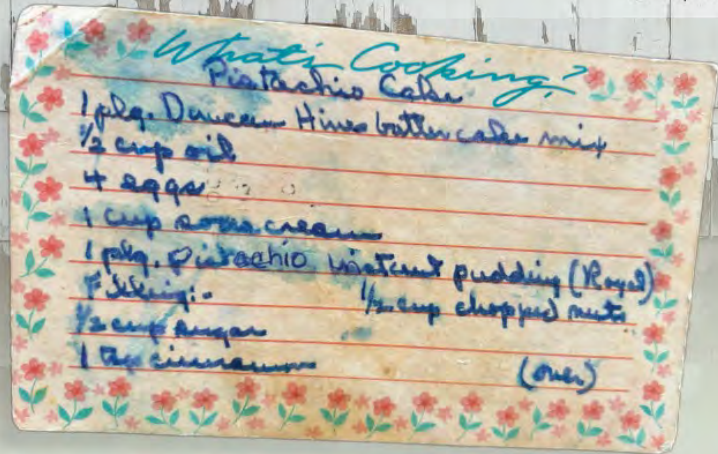 What's Cooking?
Pistachio Cake
1 pkg. Duncan Hines butter cake mix
1/2 cup oil
4 eggs
1 cup sour cream
1 pkg. Pistachio instant pudding (Royal)
Filling:- 1/2 cup chopped nuts
1/2 cup sugar
1 tsp cinnamon (over)